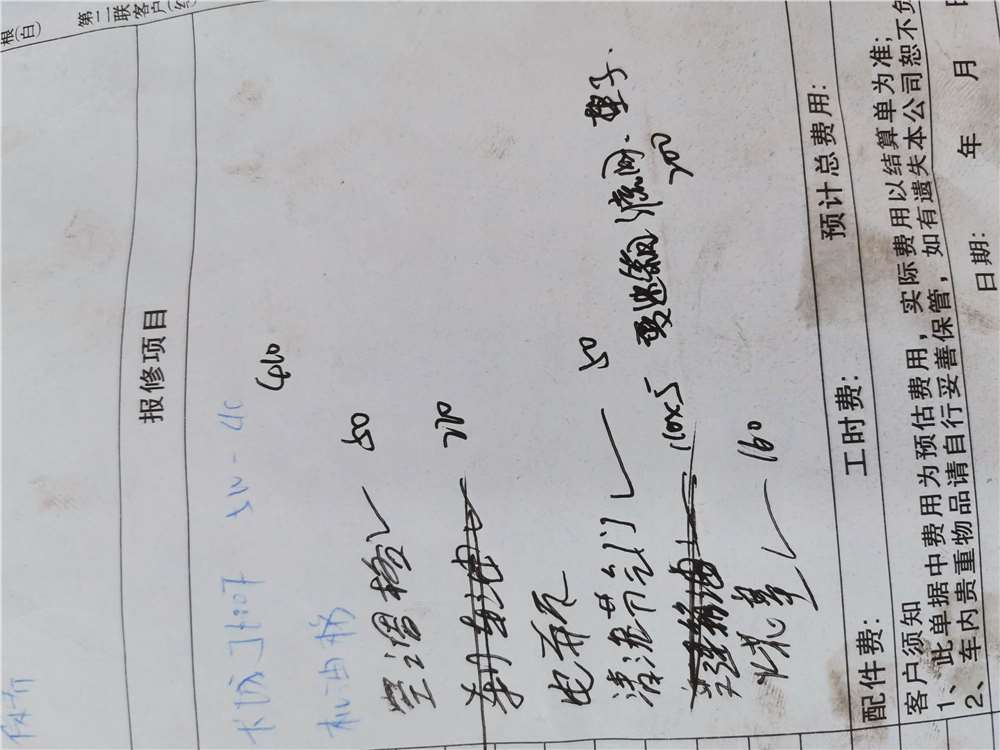 根(白)
第二联 客户(红
报修项目
5W-40
机油格
410
空调格 50
刹车油 270
电瓶
清洗节气门 50
变速箱 滤网. 垫子. 700
变速箱油 110×5
火花塞 160
配件费: 工时费: 预计总费用:
客户须知
1、此单据中费用为预估费用，实际费用以结算单为准;
2、车内贵重物品请自行妥善保管，如有遗失本公司恕不负
日期: 年 月 日